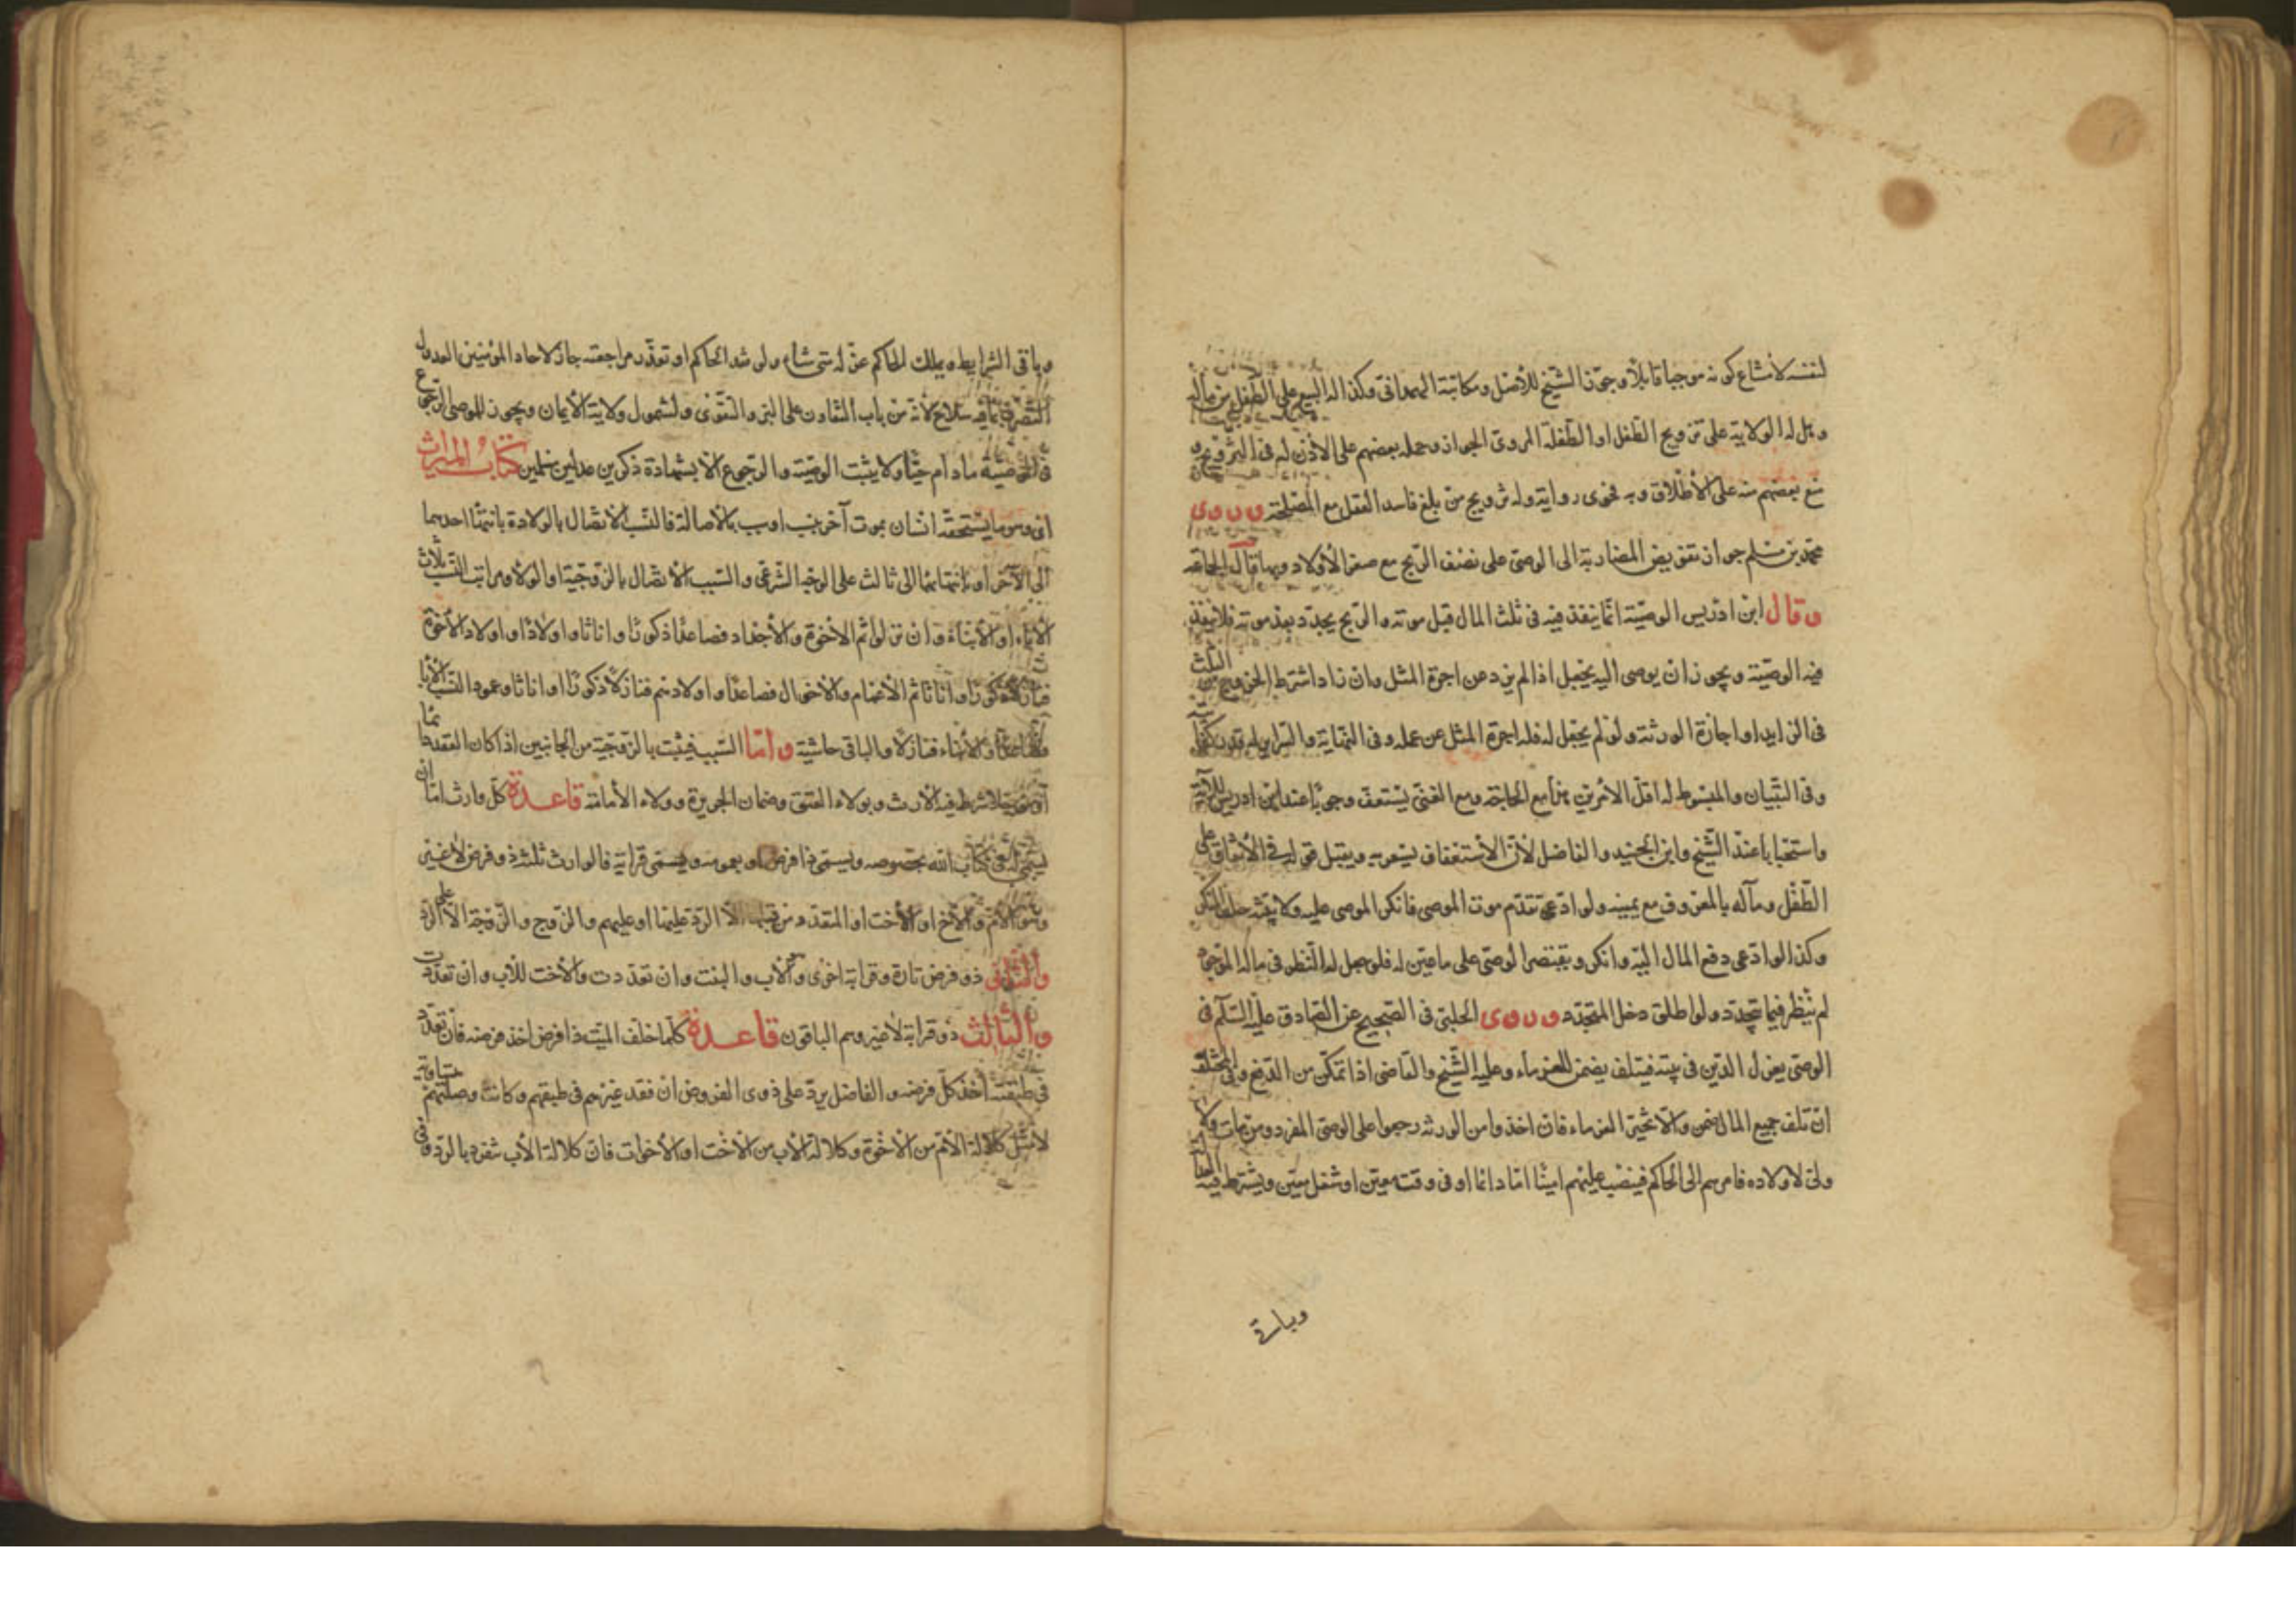 لنفسه لامتناع كونه موجبا قابلا وجوز الشيخ للاصل ومكاتبة الهمدانى وكذا له البيع على الطفل من ماله
وهل له الولاية على تزويج الطفل او الطفلة المروى الجواز وحمله بعضهم على الاذن له فى التزويج و
منع بعضهم منه على الاطلاق وبه فحوى رواية وله تزويج من بلغ فاسد العقل مع المصلحة وروى
محمد بن مسلم جواز تفويض المضاربة الى الوصى على نصف الربح مع صغر الاولاد وبها قال الجماعة
وقال ابن ادريس الوصية انما ينفذ فيه فى ثلث المال قبل موته والربح يجدد بعد موته فلا ينفذ
فيه الوصية ويجوز ان يوصى اليه بجعل اذا لم يزد عن اجرة المثل وان زاد اشترط الخروج من الثلث
فى الزايد او اجازة الورثة ولو لم يجعل له فله اجرة المثل عن عمله وفى النهاية والسراير له قدر كفايته
وفى التبيان والمبسوط له اقل الامرين منهما مع الحاجة ومع الغنى يستعف وجوبا عند ابن ادريس للآية
واستحبابا عند الشيخ وابن الجنيد والفاضل لان الاستعفاف يشعر به ويقبل قوله فى الانفاق على
الطفل وماله بالمعروف مع يمينه ولو ادعى تقدم موت الموصى فانكر الموصى عليه ولا بينة حلف المنكر
وكذا لو ادعى دفع المال اليه وانكر ويقتصر الوصى على ما عين له فلو جعل له النظر فى ماله الموجود
لم ينظر فيما يتجدد ولو اطلق دخل المتجدد وروى الحلبى فى الصحيح عن الصادق عليه السلام فى
الوصى يعزل الدين فى بيته فيتلف يضمن للغرماء وعليه الشيخ والقاضى اذا تمكن من الدفع وفى المختلف
ان تلف جميع المال ضمن والا تخير الغرماء فان اخذوا من الورثة رجعوا على الوصى المفرد ومن مات ولا
ولى لاولاده فامرهم الى الحاكم فينصب عليهم امينا اما دائما او فى وقت معين او شغل معين ويشترط فيه العدالة
وباقى
وباقى الشرايط ويملك الحاكم عزله متى شاء ولو فقد الحاكم او تعذر مراجعته جاز لآحاد المؤمنين العدول
التصرف بما فيه صلاح لانه من باب التعاون على البر والتقوى ولشمول ولاية الايمان ويجوز للموصى الرجوع
فى الوصية ما دام حيا ولا يثبت الوصية والرجوع الا بشهادة ذكرين عدلين مسلمين كتاب الميراث
اى وهو ما يستحقه انسان بموت آخر بنسب او سبب بالاصالة فالنسب الاتصال بالولادة بانتهاء احدهما
الى الآخر او بانتهائهما الى ثالث على الوجه الشرعى والسبب الاتصال بالزوجية او الولاء ومراتب النسب ثلاث
الآباء او الابناء وان نزلوا ثم الاخوة والاجداد فصاعدا ذكورا واناثا واولاد او اولاد الاخوة
فنازلا ذكورا واناثا ثم الاعمام والاخوال فصاعدا واولادهم فنازلا ذكورا او اناثا وعمود النسب الآباء
فصاعدا والابناء فنازلا والباقى حاشية واما السبب فيثبت بالزوجية من الجانبين اذا كان العقد دائما
او متعة شرط فيه الارث وبولاء العتق وضمان الجريرة وولاء الامامة قاعدة كل وارث اما ان
يسمى له فى كتاب الله بخصوصه ويسمى ذا فرض او بعمومه ويسمى قرابة فالوارث ثلثة ذو فرض لا غير
وهو الام والاخ او الاخت او المتعدد من قبلها الا الرد عليها او عليهم والزوج والزوجة الا الرد على
والثانى ذو فرض تارة وقرابة اخرى وهو الاب والبنت وان تعددت والاخت للاب وان تعددت
والثالث ذو قرابة لا غير وهم الباقون قاعدة كلما خلف الميت ذا فرض اخذ فرضه فان تعدد
فى طبقته اخذ كل فرضه والفاضل يرد على ذوى الفروض ان فقد غيرهم فى طبقتهم وكانت وصلتهم متساوية
لا مثل كلالة الام من الاخوة وكلالة الاب من الاخت او الاخوات فان كلالة الاب تنفرد بالرد وفى